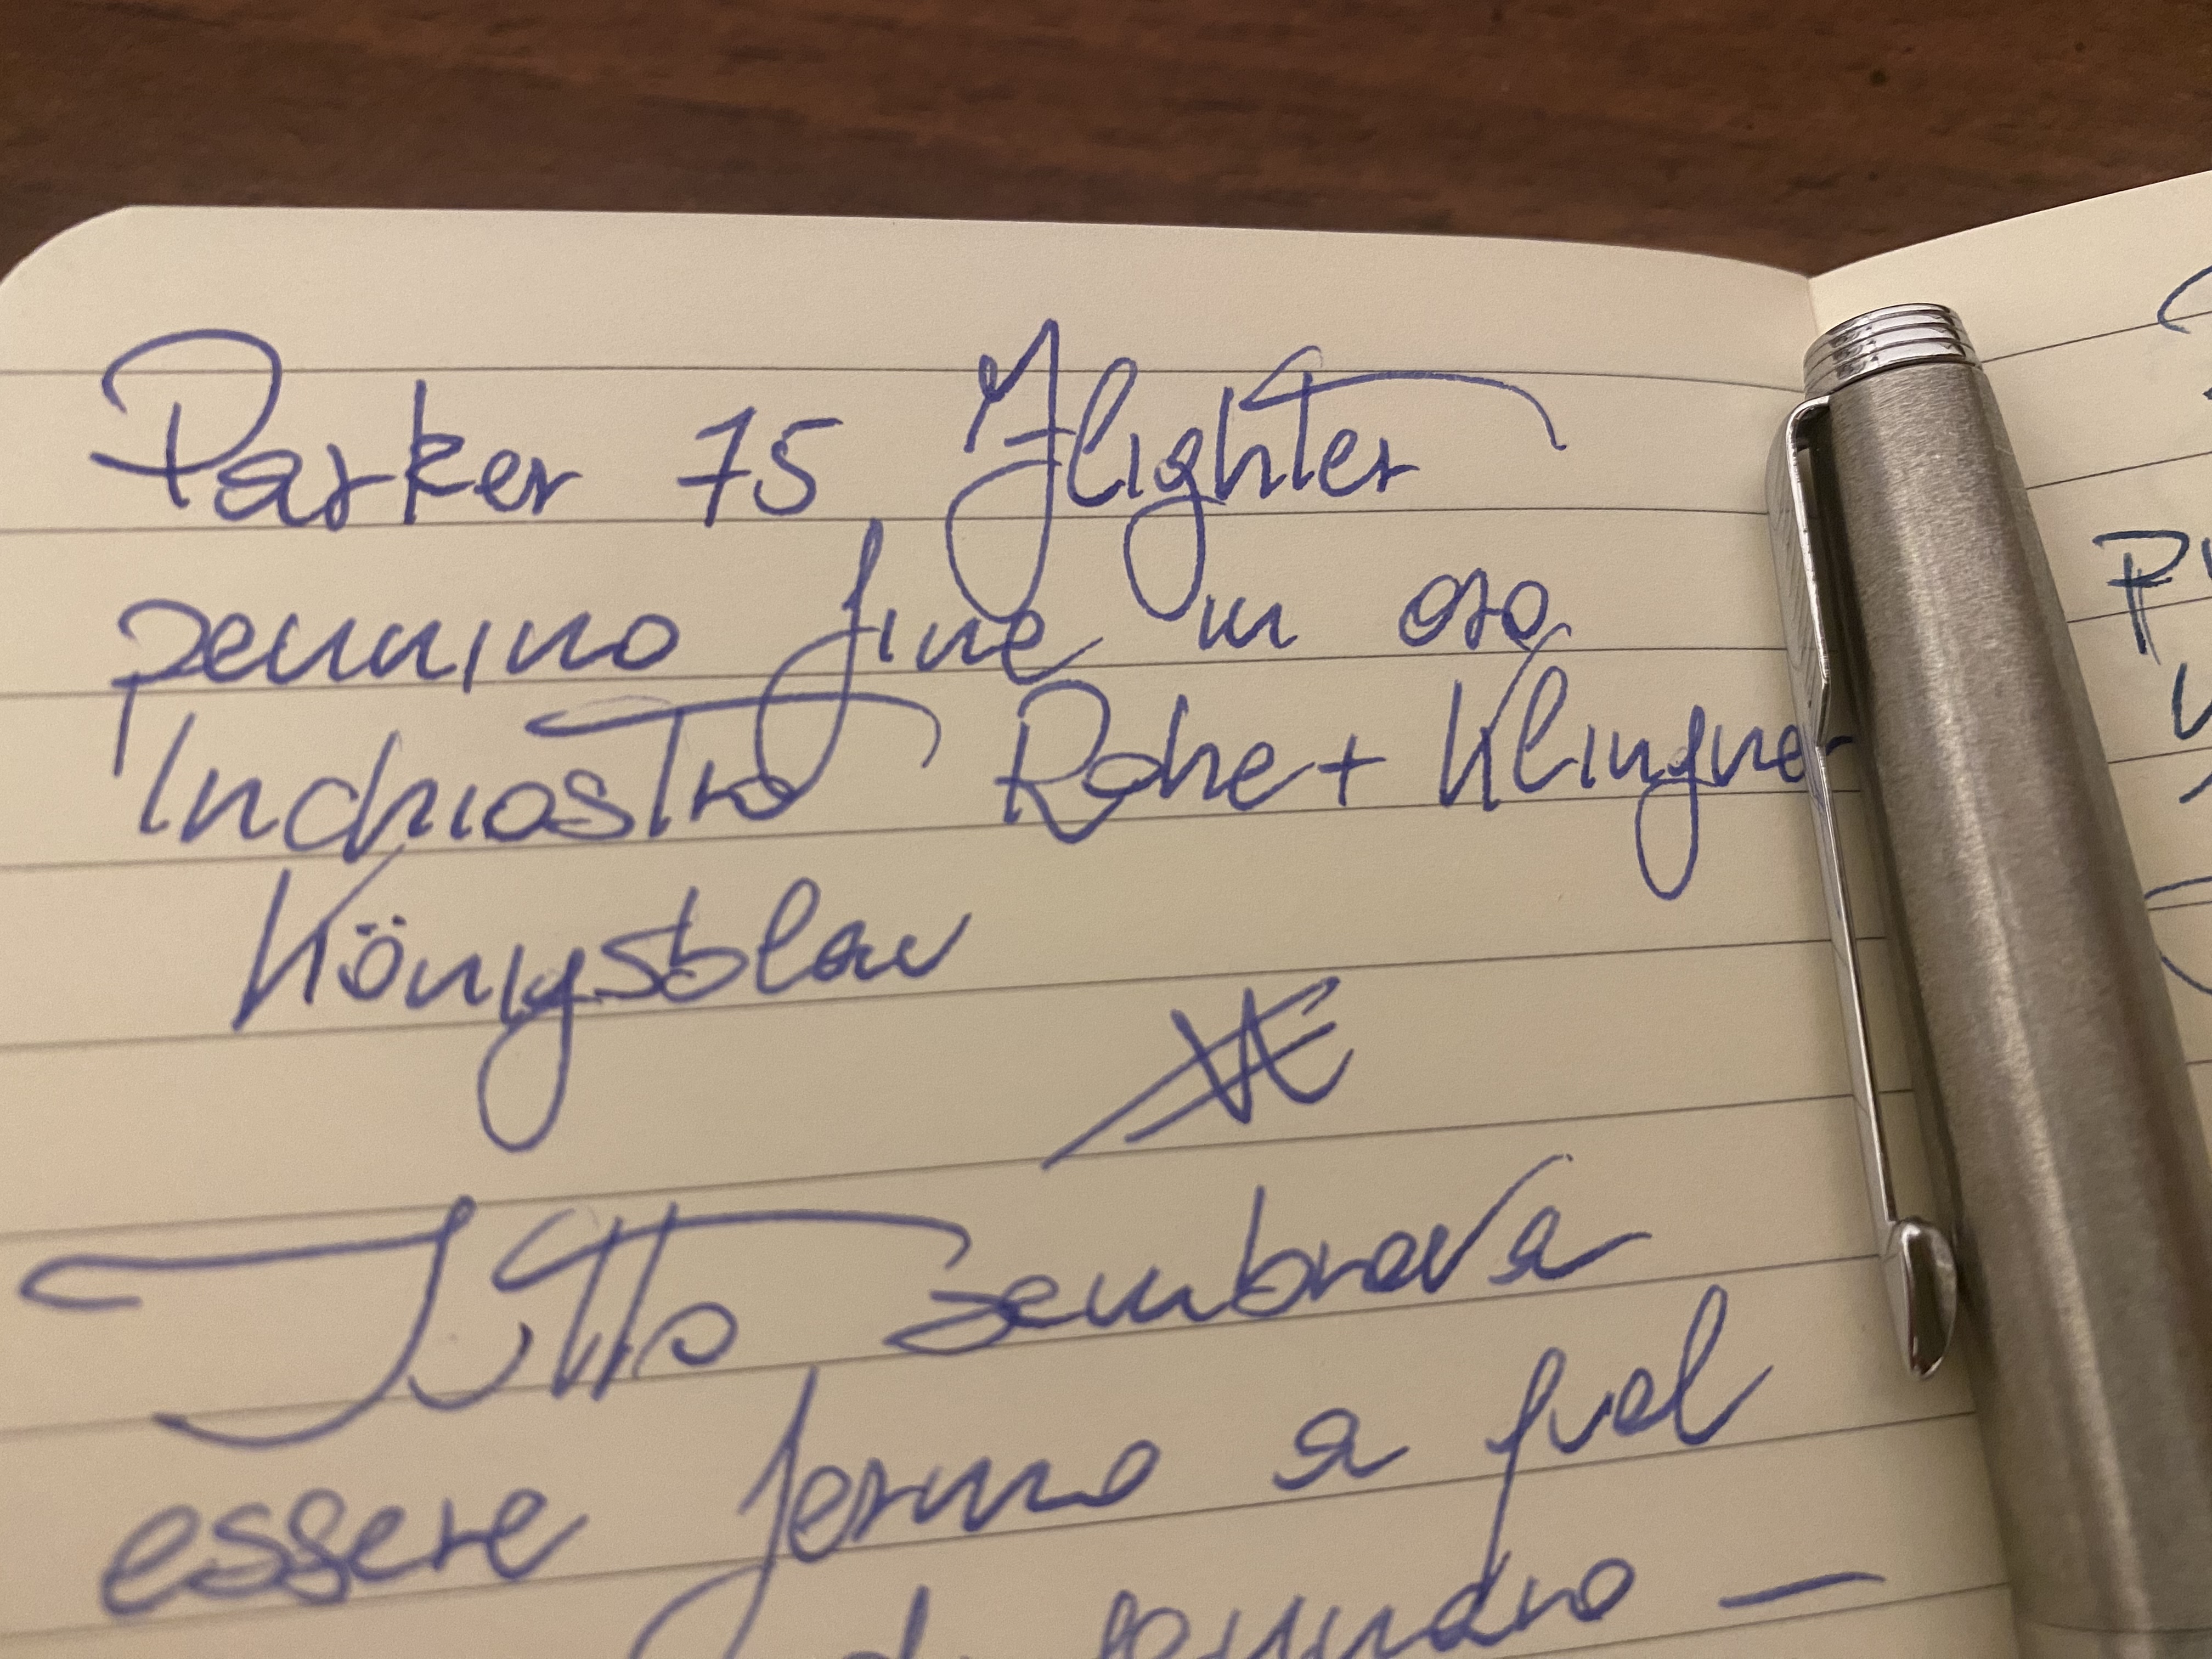 Parker 75 Flighter
pennino fine in oro
Inchiostro Rohe + Klingner
Königsblau
Tutto sembrava
essere fermo a quel